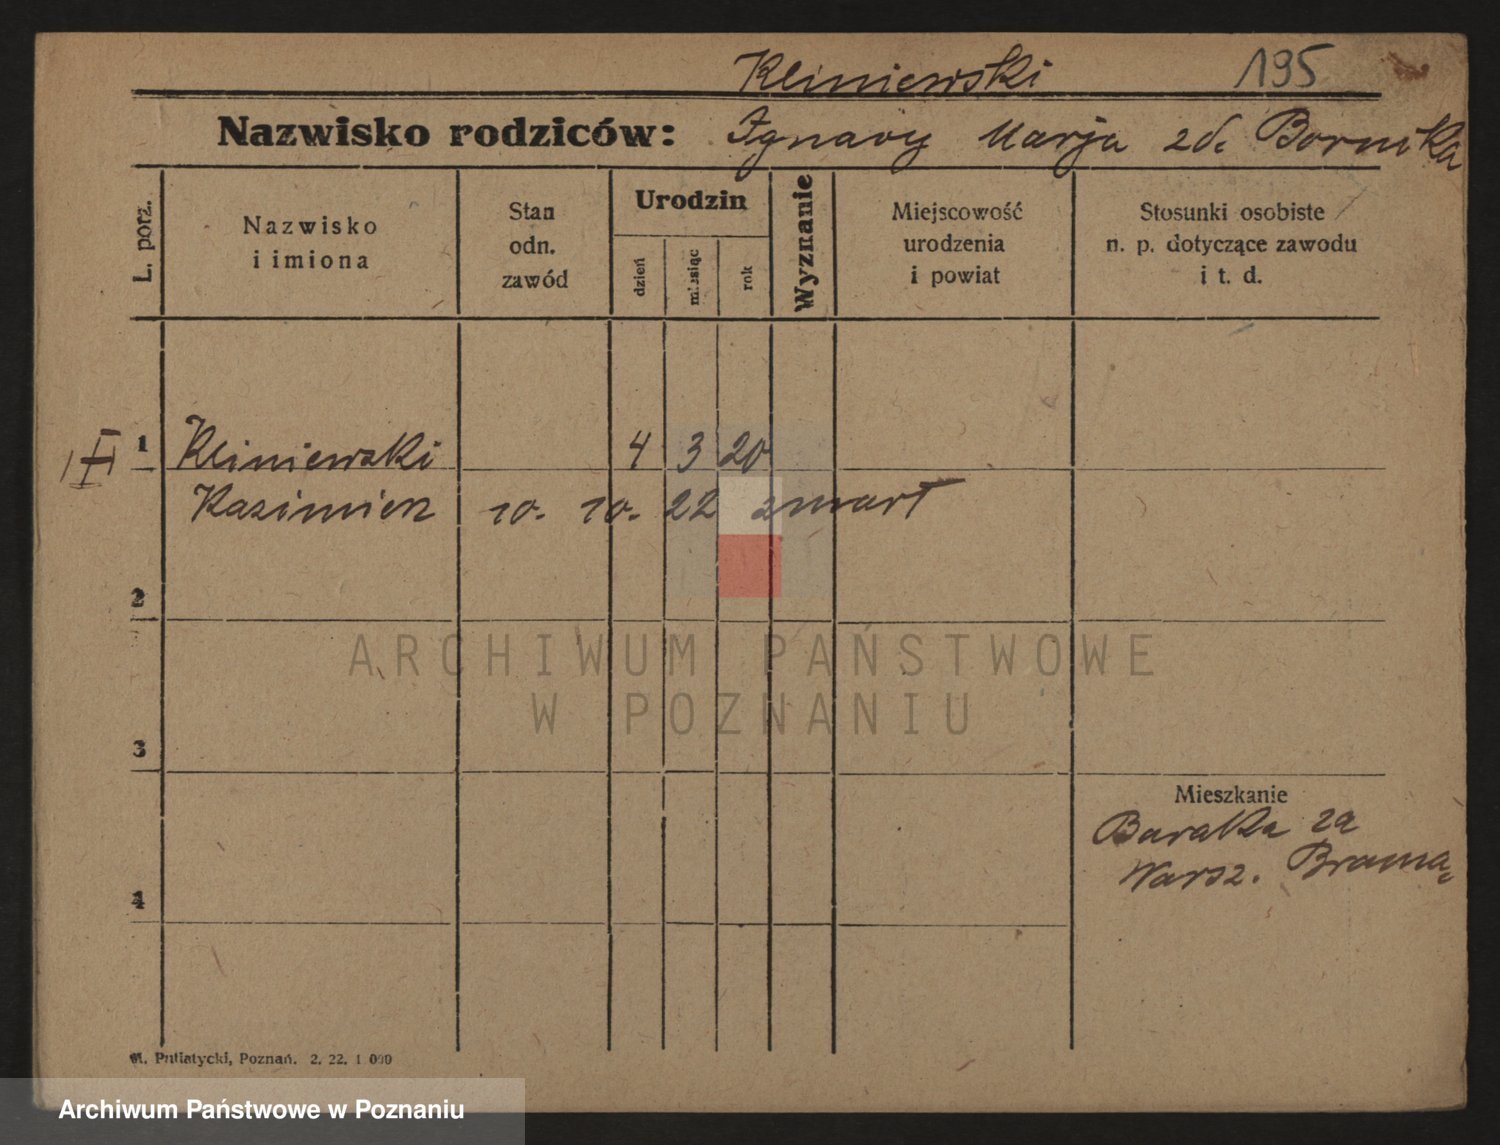 Kliniewski 195
Nazwisko rodziców: Ignacy Marja zd. Bornika
L. porz.
Nazwisko
i imiona
Stan
odn.
zawód
Urodzin
dzień
miesiąc
rok
Wyznanie
Miejscowość
urodzenia
i powiat
Stosunki osobiste
n. p. dotyczące zawodu
i t. d.
1 Kliniewski 4 3 20
Kazimierz 10. 10. 22 zmarł
2
3
4
Mieszkanie
Baraka za
Warsz. Bramą
M. Putiatycki, Poznań. 2. 22. 1 000
ARCHIWUM PAŃSTWOWE
W POZNANIU
Archiwum Państwowe w Poznaniu